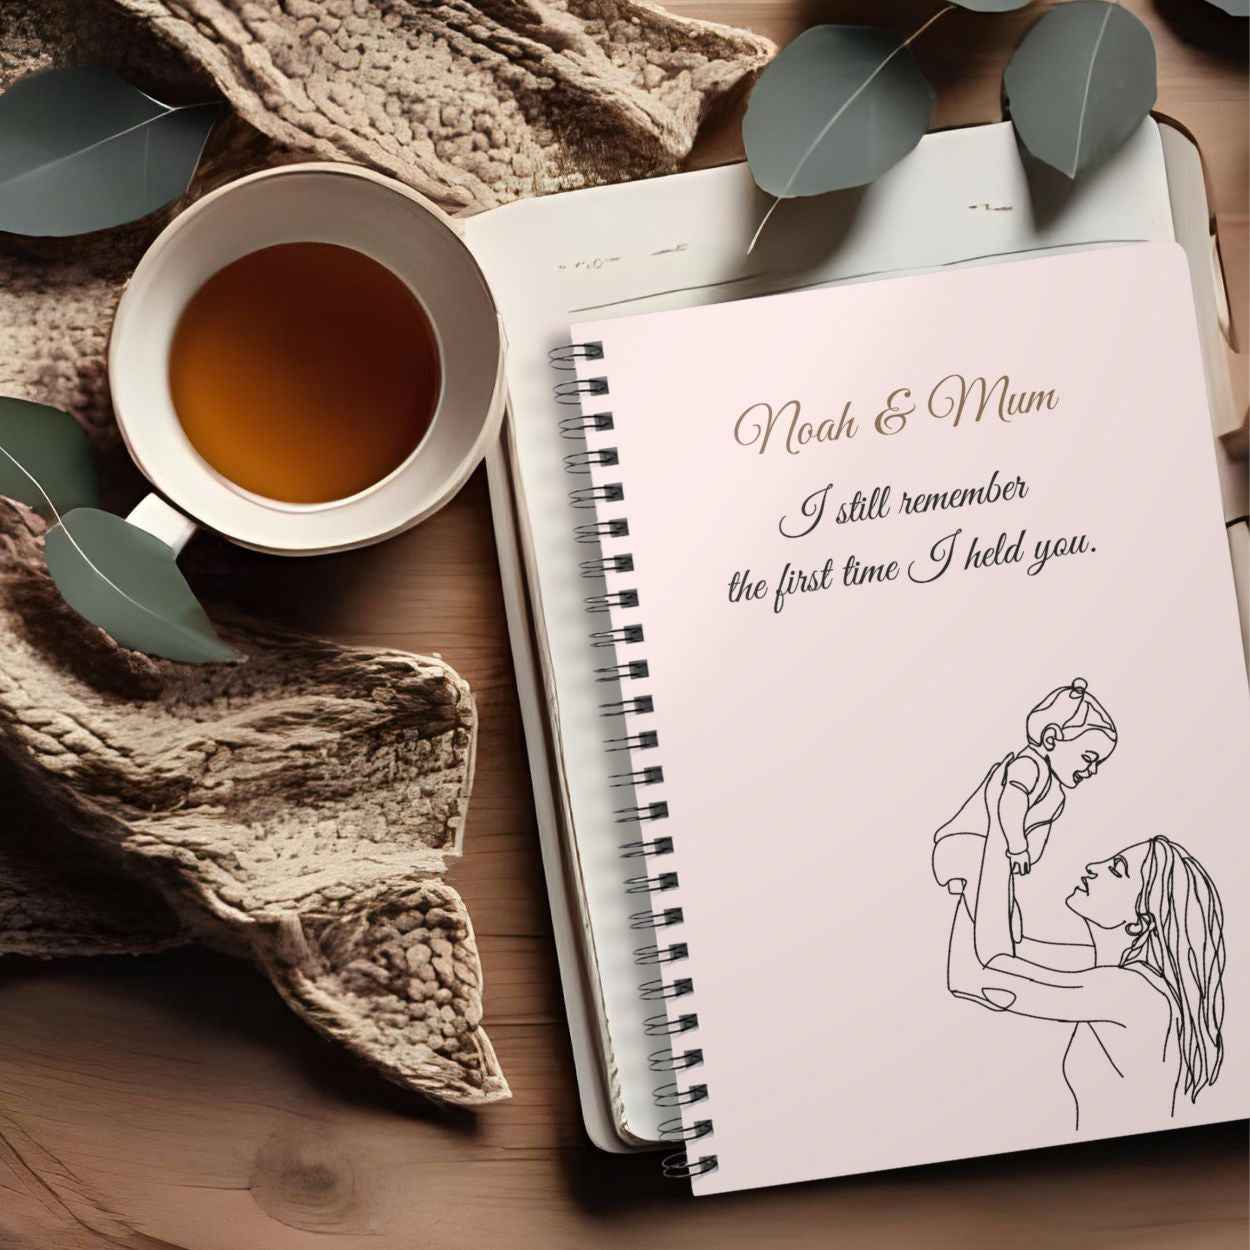 Noah & Mum
I still remember
the first time I held you.